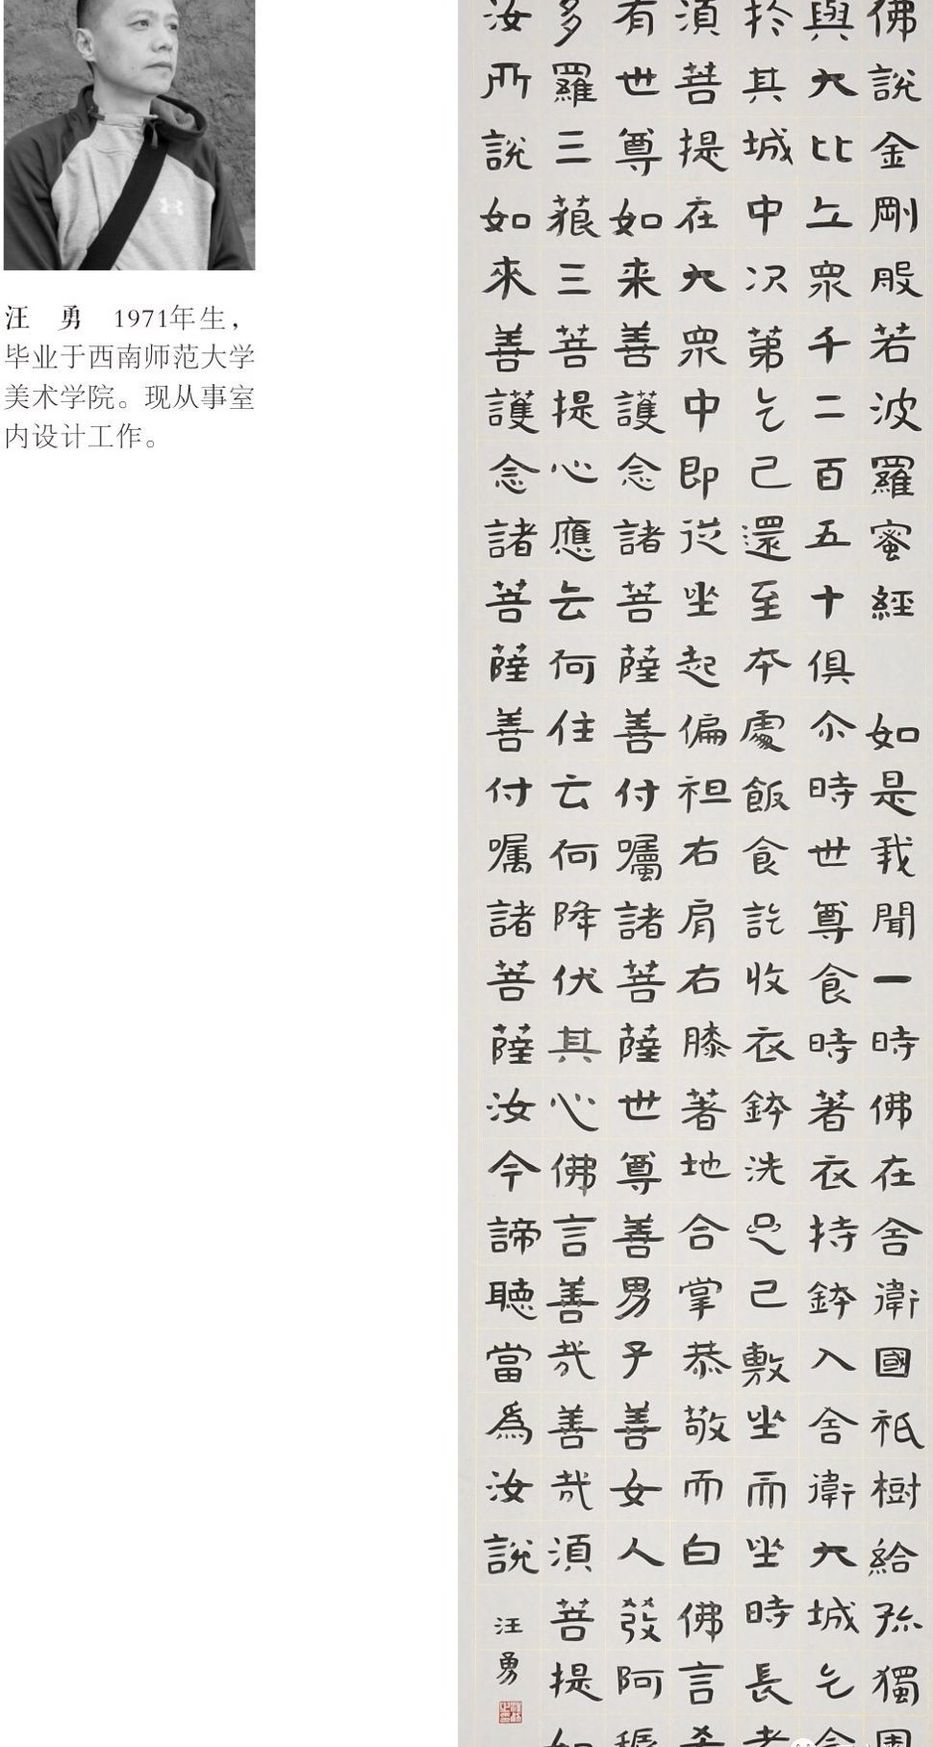 汪　勇　1971年生，
毕业于西南师范大学
美术学院。现从事室
内设计工作。
佛說金剛般若波羅蜜經　如是我聞一時佛在舍衛國祇樹給孤獨園
與大比丘眾千二百五十俱尒時世尊食時著衣持鉢入舍衛大城乞食
扵其城中次第乞己還至夲處飯食訖收衣鉢洗足己敷坐而坐時長老
須菩提在大眾中即從坐起偏袒右肩右膝著地合掌恭敬而白佛言希
有世尊如来善護念諸菩薩善付囑諸菩薩世尊善男子善女人發阿耨
多羅三藐三菩提心應云何住云何降伏其心佛言善哉善哉須菩提如
汝所說如來善護念諸菩薩善付嘱諸菩薩汝今諦聽當為汝說
汪勇